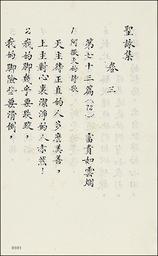 聖詠集
卷三
第七十三篇(72) 富貴如雲烟
1 阿撒夫的詩歌
天主待正直的人多麼美善,
上主對心裏潔淨的人亦然!
2 我的脚幾乎要跌跤,
我的脚險些要滑倒,